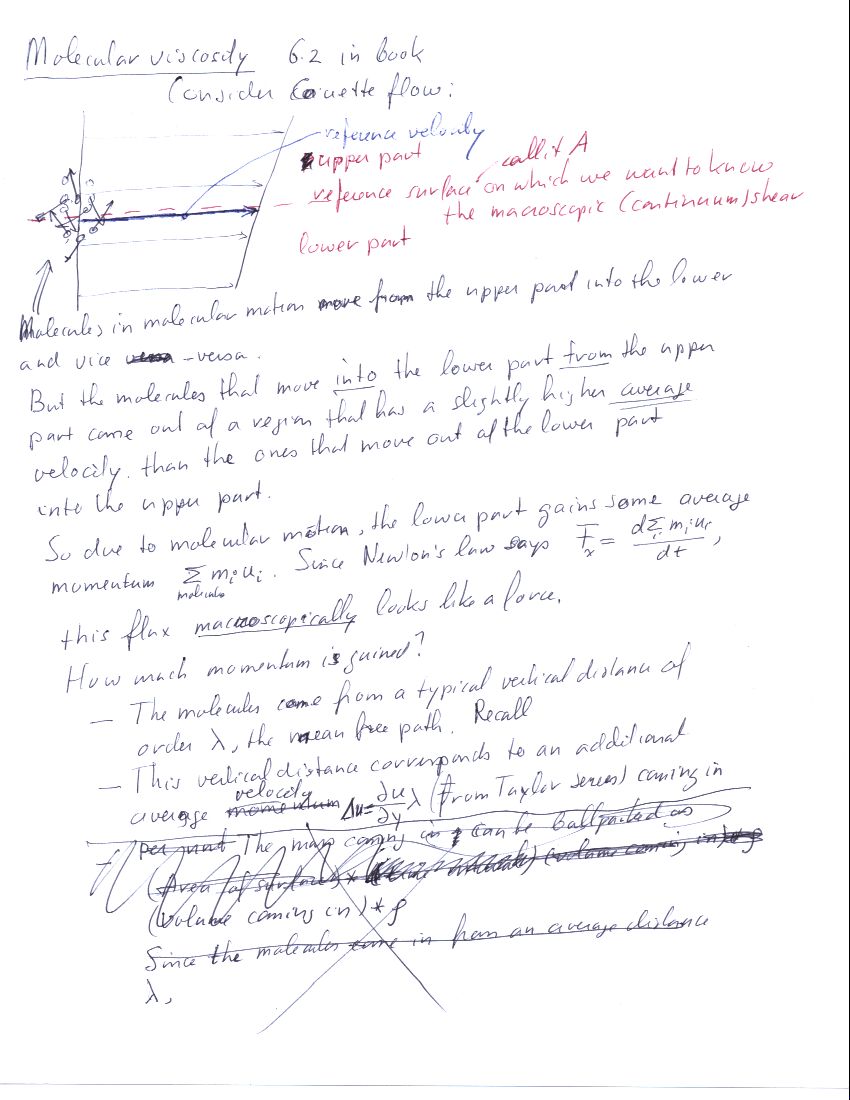 Molecular viscosity 6.2 in book
Consider Couette flow:
reference velocity
upper part
call it A
reference surface on which we want to know
the macroscopic (continuum) shear
lower part
Molecules in molecular motion move from the upper part into the lower
and vice versa -versa.
But the molecules that move into the lower part from the upper
part come out of a region that has a slightly higher average
velocity. than the ones that move out of the lower part
into the upper part.
So due to molecular motion, the lower part gains some average
momentum Σ mᵢuᵢ. Since Newton's law says Fₓ = dΣᵢ mᵢuᵢ / dt,
molecules
this flux macroscopically looks like a force.
How much momentum is gained?
– The molecules come from a typical vertical distance of
order λ, the mean free path. Recall
– This vertical distance corresponds to an additional
velocity
average momentum Δu = ∂u/∂y λ (from Taylor series) coming in
Per unit The mass coming in can be ballparked as
(Area of surface) * (volume coming in) * ρ
(Volume coming in) * ρ
Since the molecules come in from an average distance
λ,